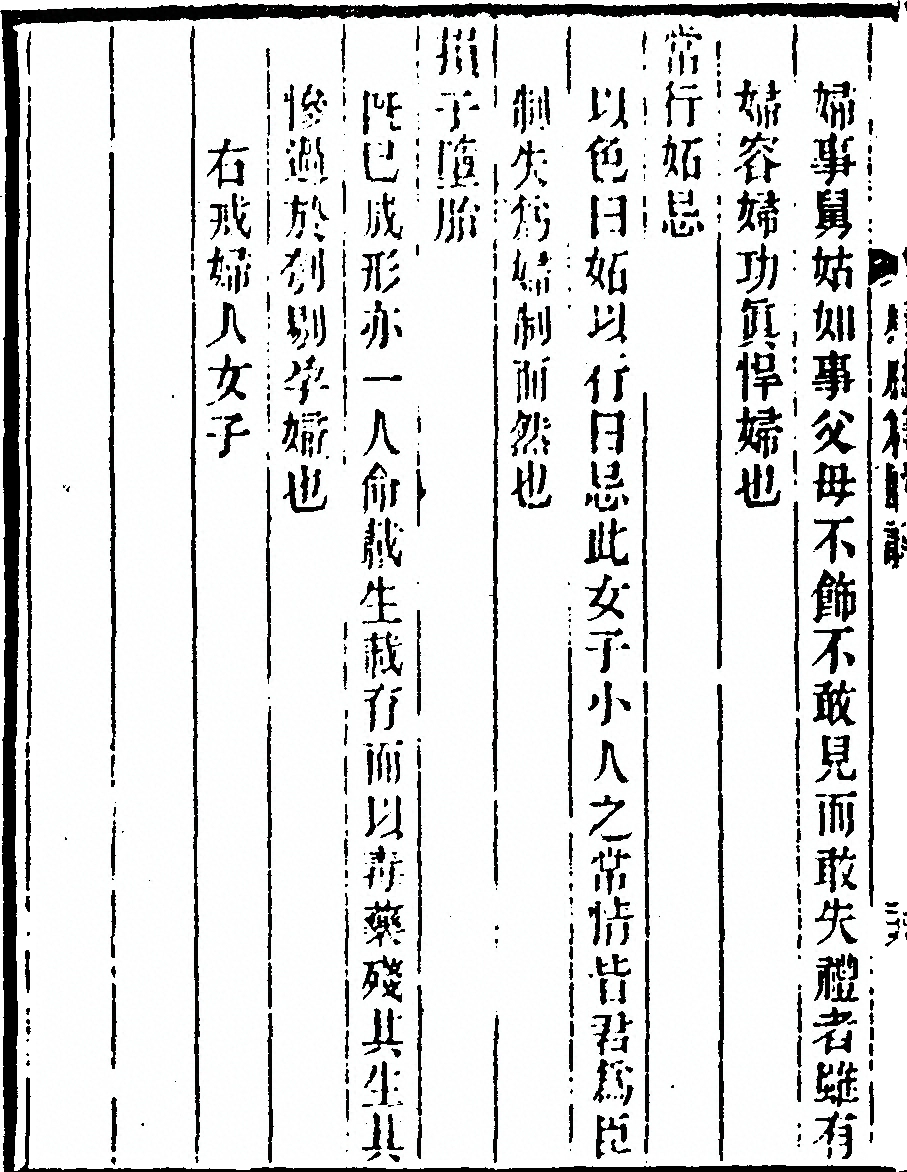 婦事舅姑如事父母不飾不敢見而敢失禮者雖有
婦容婦功眞悍婦也
常行妬忌
以色曰妬以行曰忌此女子小人之常情皆君爲臣
制失爲婦制而然也
損子墮胎
旣已成形亦一人命戕生戕存而以毒藥殘其生其
慘過於刳剔孕婦也
右戒婦人女子